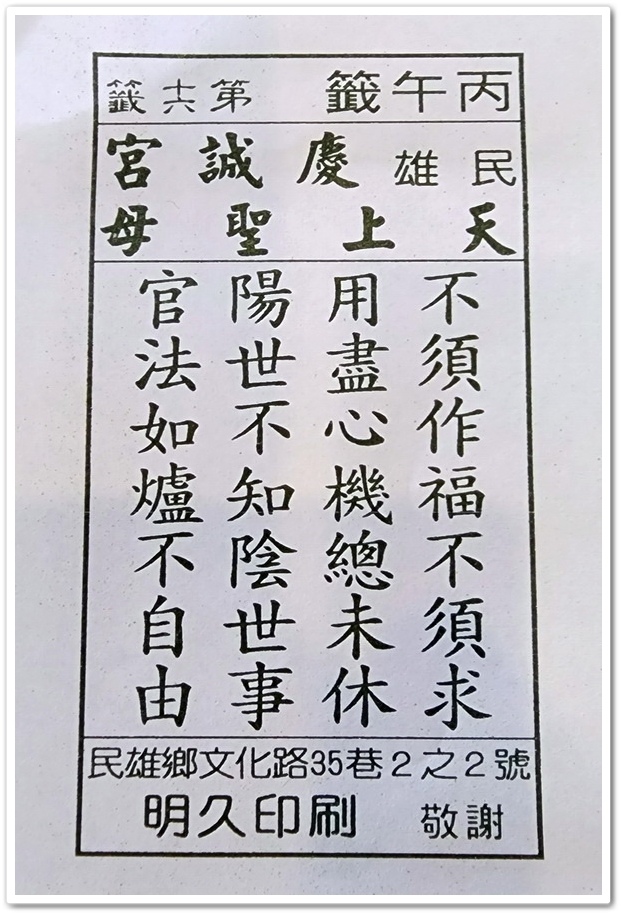 丙午籤 第十六籤
民雄 慶誠宮
天上聖母
不須作福不須求
用盡心機總未休
陽世不知陰世事
官法如爐不自由
民雄鄉文化路35巷2之2號
明久印刷 敬謝